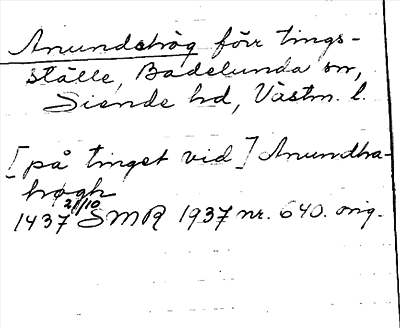 Anundshög förr tings-
ställe, Badelunda sn,
Siende hd, Västm. l.
[på tinget vid] Anundha-
høgh
1437 21/10 SMR 1937 nr. 640. orig.